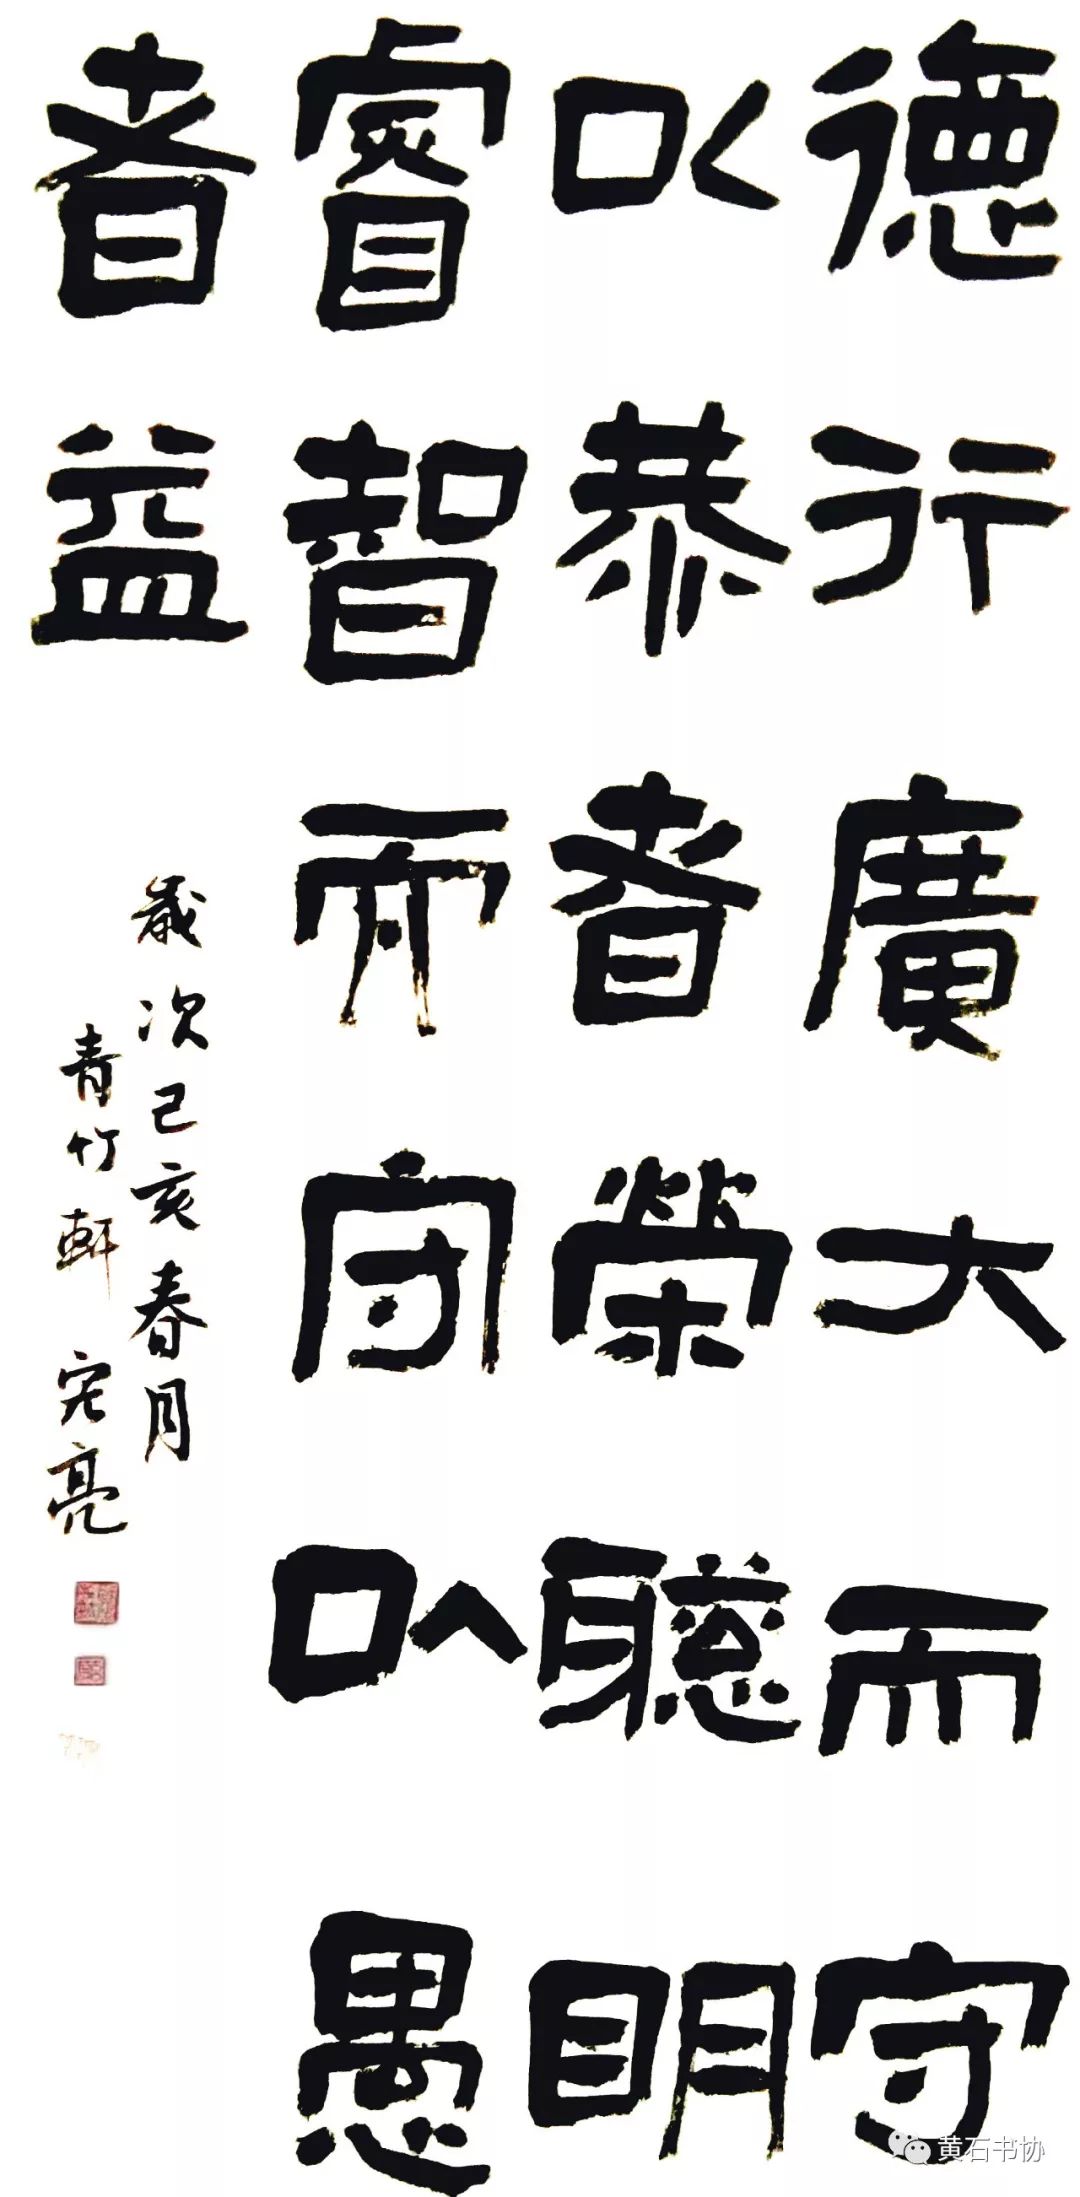 德行廣大而守
以恭者榮聰明
睿智而守以愚
者益
歲次己亥春月
青竹軒 宪亮
黄石书协